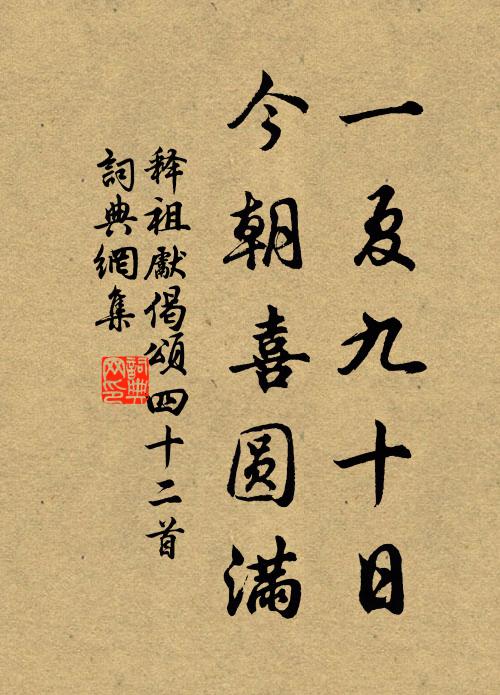 一夏九十日
今朝喜圆滿
释祖獻偈頌四十二首
詞典網集
詞典
网印